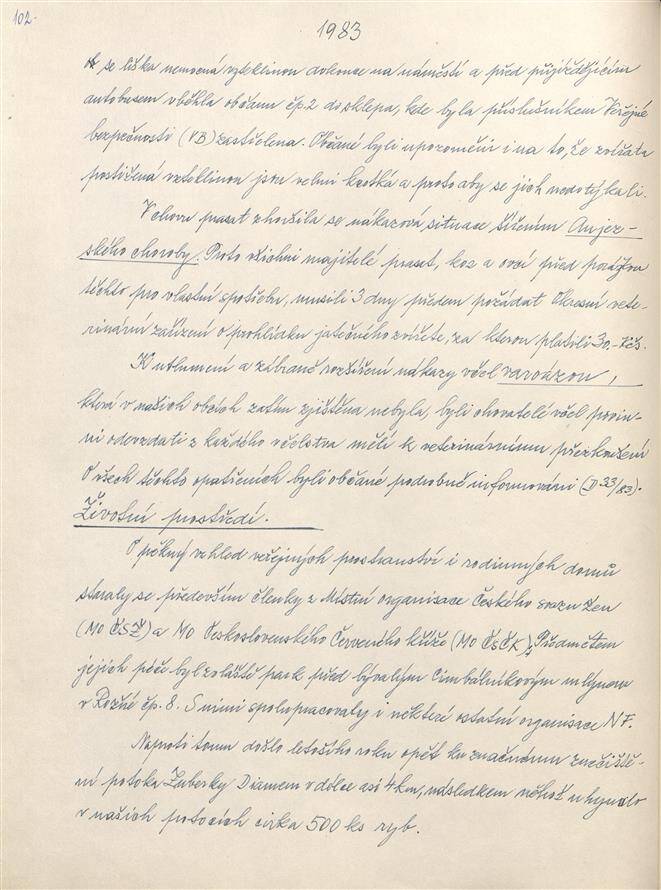 102.
1983
se liška nemocná vzteklinou dokonce na náměstí a před přijíždějícím
autobusem vběhla občanu čp. 2 do sklepa, kde byla příslušníkem Veřejné
bezpečnosti (VB) zastřelena. Občané byli upozorněni i na to, že zvířata
postižená vzteklinou jsou velmi krotká a proto aby se jich nedotýkali.
V chovu prasat zhoršila se nákazová situace šířením Aujez-
ského choroby. Proto všichni majitelé prasat, koz a ovcí před porážkou
těchto pro vlastní spotřebu, musili 3 dny předem požádat Okresní vete-
rinární zařízení o prohlídku jatečného zvířete, za kterou platili 30,- Kčs.
K utlumení a zábraně rozšíření nákazy včel varoázou,
která v našich obcích zatím zjištěna nebyla, byli chovatelé včel povin-
ni odevzdati z každého včelstva měli k veterinárnímu přezkoušení
O všech těchto opatřeních byli občané podrobně informováni (D 33/83).
Životní prostředí.
O pěkný vzhled veřejných prostranství i rodinných domů
staraly se především členky z Místní organisace Českého svazu žen
(MO ČSŽ) a MO Československého Červeného kříže (MO ČSČK). Předmětem
jejich péče byl zvláště park před bývalým Cimbálníkovým mlýnem
v Rožné čp. 8. S nimi spolupracovaly i některé ostatní organisace NF.
Naproti tomu došlo letošního roku opět ku značnému znečiště-
ní potoka Zuberky Diamem v délce asi 4 km, následkem něhož uhynulo
v našich potocích cirka 500 ks ryb.